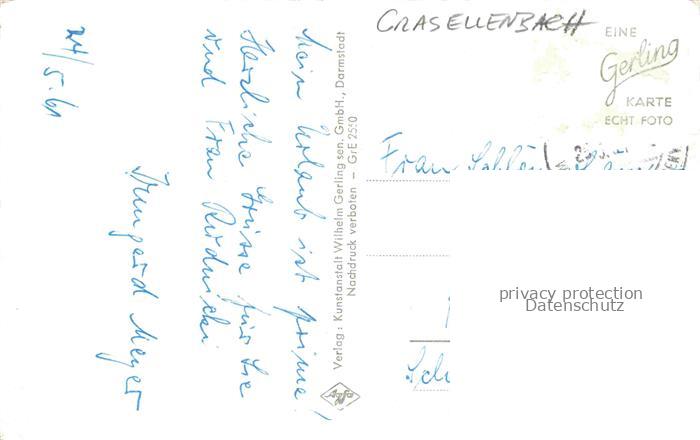 24/5.61
Mein Urlaub ist prima!
Herzliche Grüsse für Sie
und Frau Rudnicki
Irmgard Meyer
Verlag: Kunstanstalt Wilhelm Gerling sen. GmbH., Darmstadt
Nachdruck verboten — GrE 2550
Agfa
GRASELLENBACH
EINE
Gerling
KARTE
ECHT FOTO
Frau
privacy protection
Datenschutz